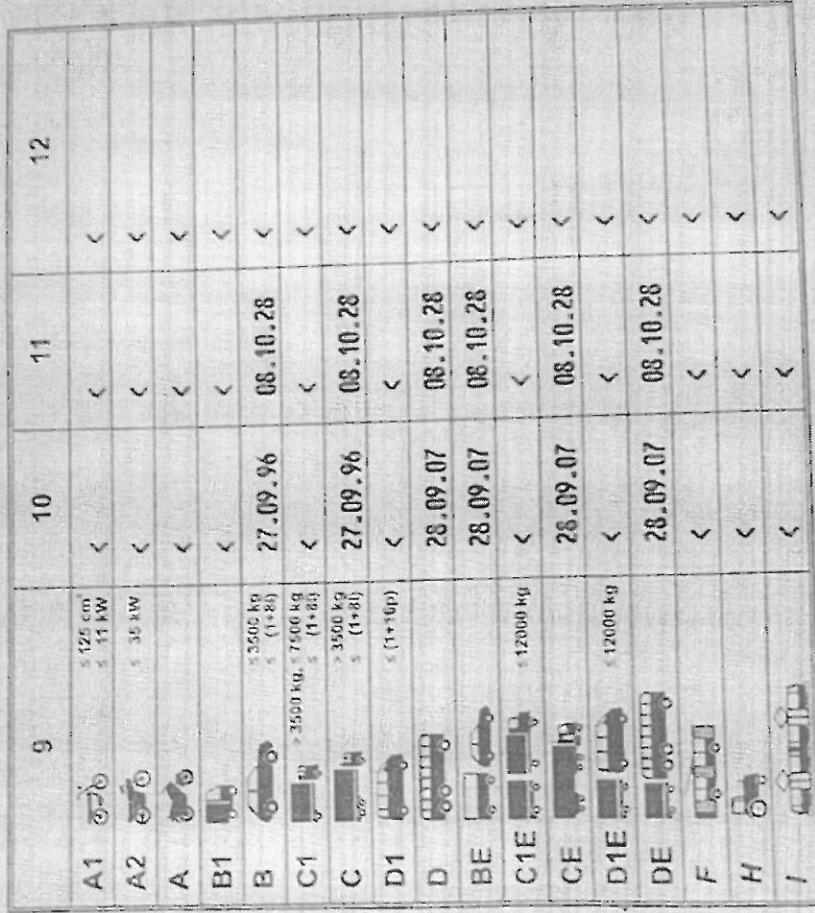 9 10 11 12
A1 ≤ 125 cm³ < < <
≤ 11 kW
A2 ≤ 35 kW < < <
A < < <
B1 < < <
B ≤ 3500 kg 27.09.96 08.10.28 <
≤ (1+8l)
C1 > 3500 kg, ≤ 7500 kg < < <
≤ (1+8l)
C > 3500 kg 27.09.96 08.10.28 <
≤ (1+8l)
D1 ≤ (1+16p) < < <
D 28.09.07 08.10.28 <
BE 28.09.07 08.10.28 <
C1E ≤ 12000 kg < < <
CE 28.09.07 08.10.28 <
D1E ≤ 12000 kg < < <
DE 28.09.07 08.10.28 <
F < < <
H < < <
I < < <